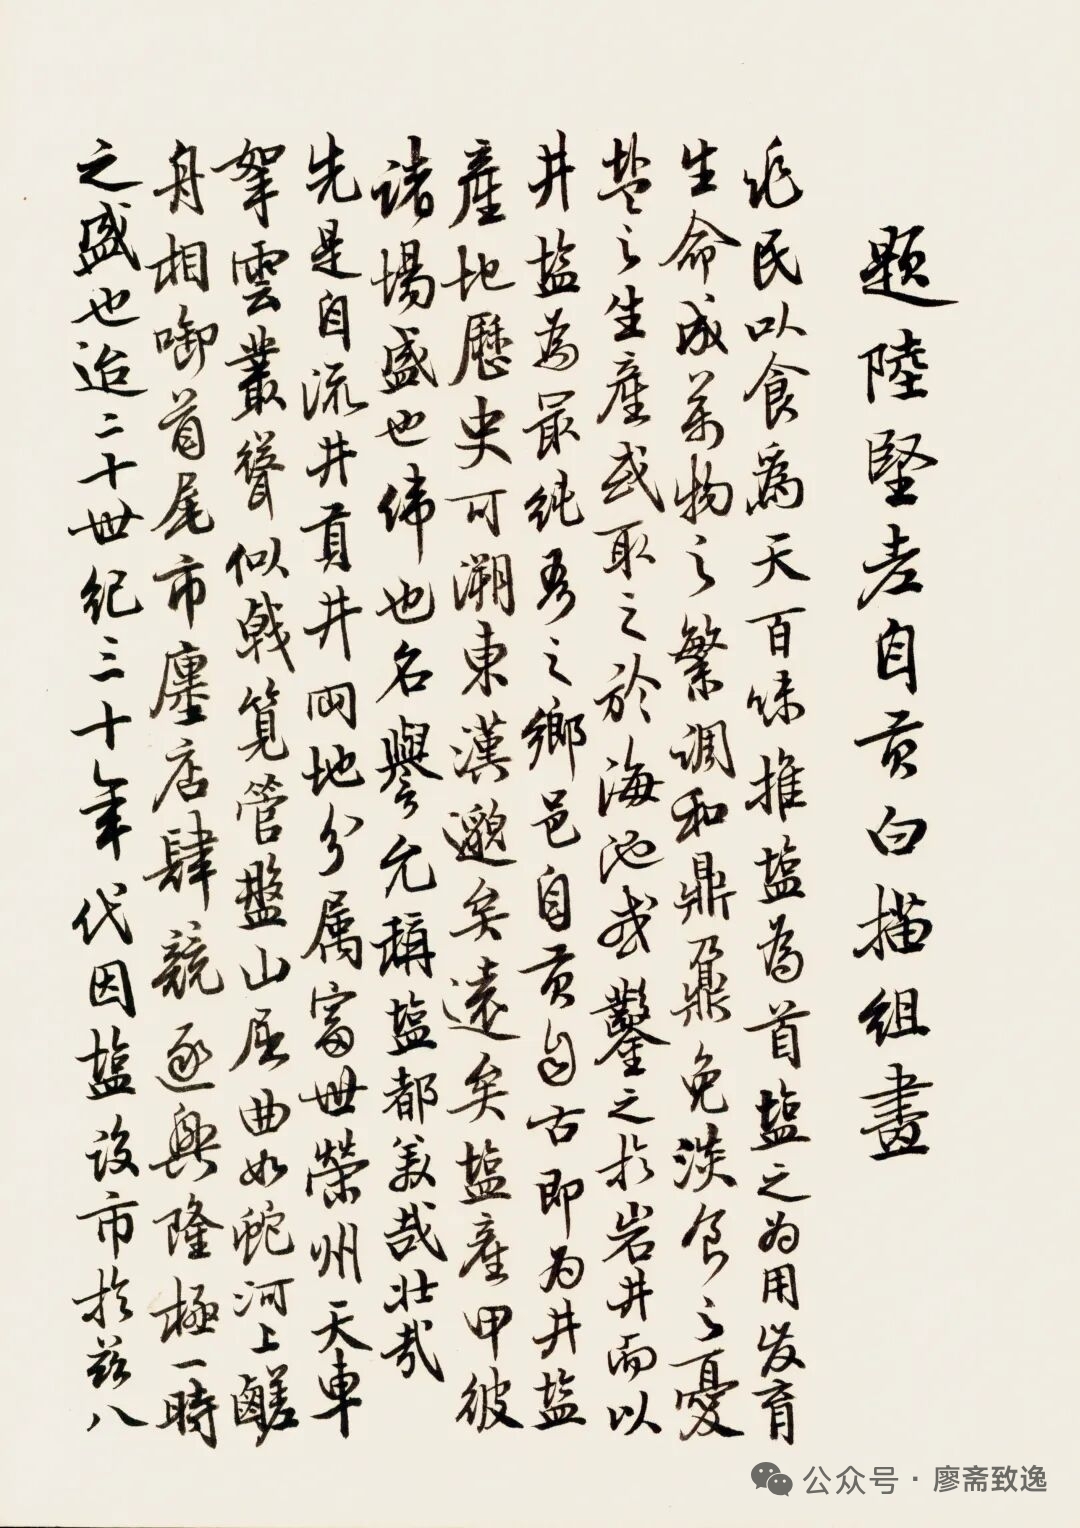 題陸堅老自贡白描組畫
兆民以食為天百味推塩為首塩之为用发育
生命成萬物之繁調和鼎鼐免淡食之憂
盐之生産或取之於海池或鑿之於岩井而以
井塩為最純吾之鄉邑自贡自古即为井塩
産地歷史可溯東漢邈矣遠矣塩産甲彼
诸場盛也偉也名譽允稱塩都美哉壮哉
先是自流井貢井两地分属富世榮州天車
拏雲叢聳似戟筧管盤山屈曲如蛇河上鹾
舟相啣首尾市廛店肆競逐興隆極一時
之盛也迨二十世紀三十年代因塩设市於兹八
公众号·廖斋致逸